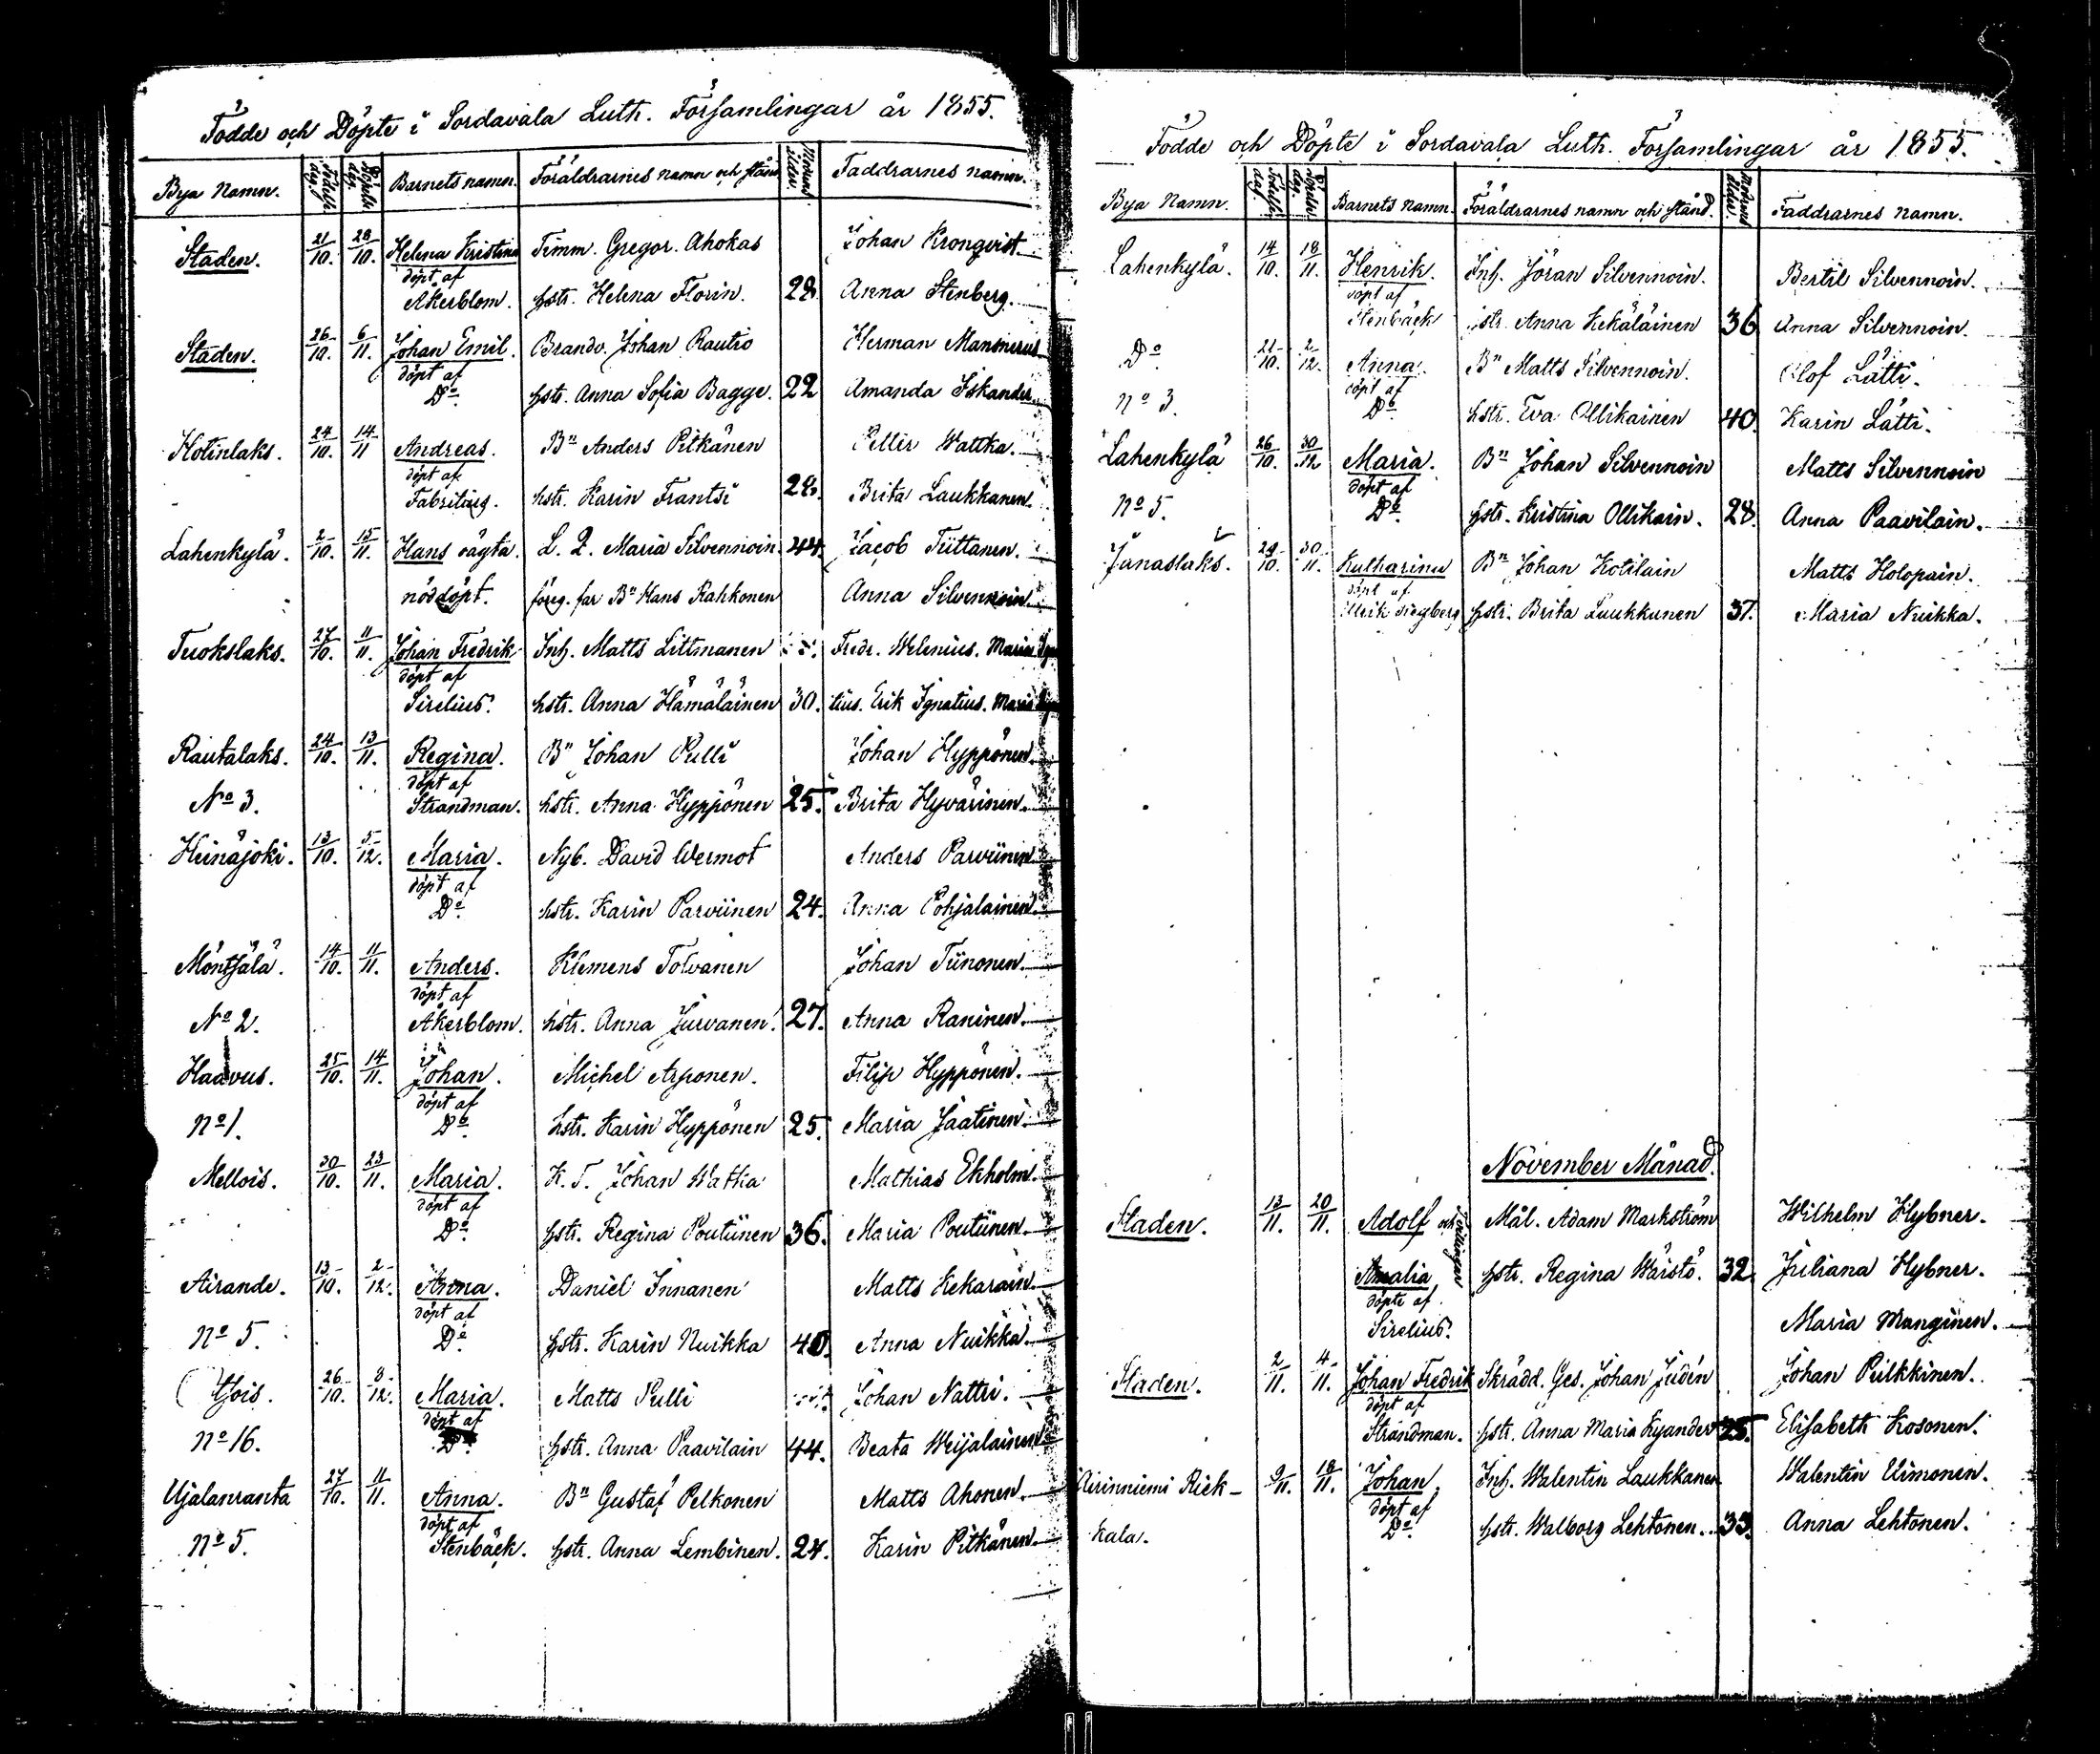 Födde och Döpte i Sordavala Luth. Församlingar år 1855.
Bya Namn. Födelse dag. Döpelse dag. Barnets namn. Föräldrarnes namn och stånd Modrens ålder. Faddrarnes namn.
Staden. 21/10. 28/10. Helena Kristina Timm. Gregor. Ahokas Johan Kronqvist.
döpt af
Åkerblom. hstr. Helena Florin. 28. Anna Stenberg.
Staden. 26/10. 6/11. Johan Emil. Brandv. Johan Rautio Herman Mansnerus
döpt af
Do. hstr. Anna Sofia Bagge. 22 Amanda Iskander.
Hotinlaks. 24/10. 14/11 Andreas. Bn Anders Pitkänen Petter Wattka.
döpt af
Fabritius. hstr. Karin Frantsi 28. Brita Laukkanen.
Lahenkylä. 2/10. 15/11. Hans oägta. L. Q. Maria Silvennoin 44. Jacob Tiittanen.
nöddöpt. föreg. far Bn Hans Kahkonen Anna Silvennoin.
Tuokslaks. 27/10. 11/11. Johan Fredrik Inh. Matts Littmanen Fredr. Welenius. Maria
döpt af
Sirelius. hstr. Anna Hämäläinen 30. tius. Erik Ignatius. Maria
Rautalaks. 24/10. 13/11. Regina. Bn Johan Pulli Johan Hyppönen.
döpt af
No 3. Strandman. hstr. Anna Hyppönen 25. Brita Hyvärinen.
Heinäjoki. 13/10. 5/12. Maria. Nyb. David Wermot Anders Parviinen
döpt af
Do. hstr. Karin Parviinen 24. Anna Pohjalainen.
Möntsälä. 14/10. 11/11. Anders. Klemens Tolvanen Johan Tiinonen.
döpt af
No 2. Åkerblom. hstr. Anna Jurvanen. 27. Anna Raninen.
Haavus. 25/10. 14/11. Johan. Michel Asponen. Filip Hyppönen.
döpt af
no 1. Do. hstr. Karin Hyppönen 25. Maria Jaatinen.
Mellois. 30/10. 23/11. Maria. K. T. Johan Watka Mathias Ekholm.
döpt af
Do. hstr. Regina Poutiinen 36. Maria Poutiinen.
Airande. 13/10. 2/12. Anna. Daniel Innanen Matts Kekarain.
döpt af
no 5. Do. hstr. Karin Nuikka 40. Anna Nuikka.
Otsois. 26/10. 8/12. Maria. Matts Pulli Johan Nattri.
döpt af
no 16. Do. hstr. Anna Paavilain 44. Beata Weijalainen
Ujalanranta 27/10. 11/11. Anna. Bn Gustaf Pelkonen Matts Ahonen.
döpt af
no 5. Stenbäck. hstr. Anna Lembinen. 24. Karin Pitkänen.
Födde och Döpte i Sordavala Luth. Församlingar år 1855.
Bya Namn. Födelse dag. Döpelse dag. Barnets namn. Föräldrarnes namn och stånd. Modrens ålder. Faddrarnes namn.
Lahenkylä. 14/10. 18/11. Henrik. Inh. Jöran Silvennoin. Bertil Silvennoin.
döpt af
Stenbäck hstr. Anna Kekäläinen 36 Anna Silvennoin.
Do. 21/10. 2/12. Anna. Bn Matts Silvennoin. Olof Lätti.
döpt af
no 3. Do. hstr. Eva Ollikainen 40. Karin Lätti.
Lahenkylä 26/10. 30/12 Maria. Bn Johan Silvennoin Matts Silvennoin
döpt af
no 5. Do. hstr. Kristina Ollikain. 28. Anna Paavilain.
Jänaslaks. 29/10. 30/11. Katharina Bn Johan Kotilain Matts Holopain.
döpt af
Ulrik Siegberg hstr. Brita Laukkanen 37. Maria Nuikka.
November Månad.
Staden. 13/11. 20/11. Adolf och Tvillingar Mål. Adam Markström Wilhelm Hybner.
Amalia hstr. Regina Wäistö. 32. Juliana Hybner.
döpte af
Sirelius. Maria Manginen.
Staden. 2/11. 4/11. Johan Fredrik Skrädd. Ges. Johan Judén Johan Pulkkinen.
döpt af
Strandman. hstr. Anna Maria Kyander 25. Elisabeth Kosonen.
Airinniemi Riek- 9/11. 18/11. Johan Inh. Walentin Laukkanen Walentin Uimonen.
döpt af
kala. Do. hstr. Walborg Lehtonen. 33. Anna Lehtonen.